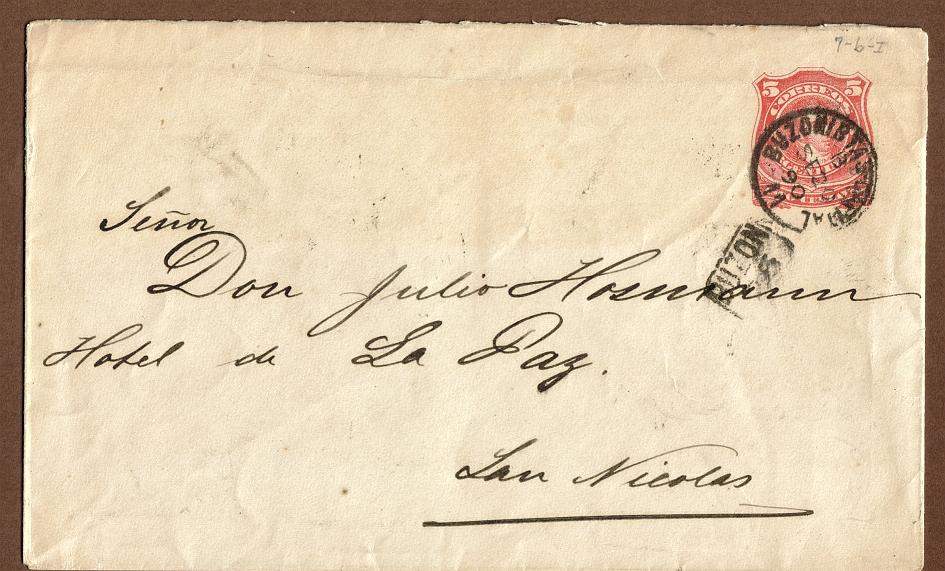 7-6-I
5 5
CORREOS
BUZONISTAS
90
BUZON
Señor
Don Julio Hosmann
Hotel de La Paz.
San Nicolas